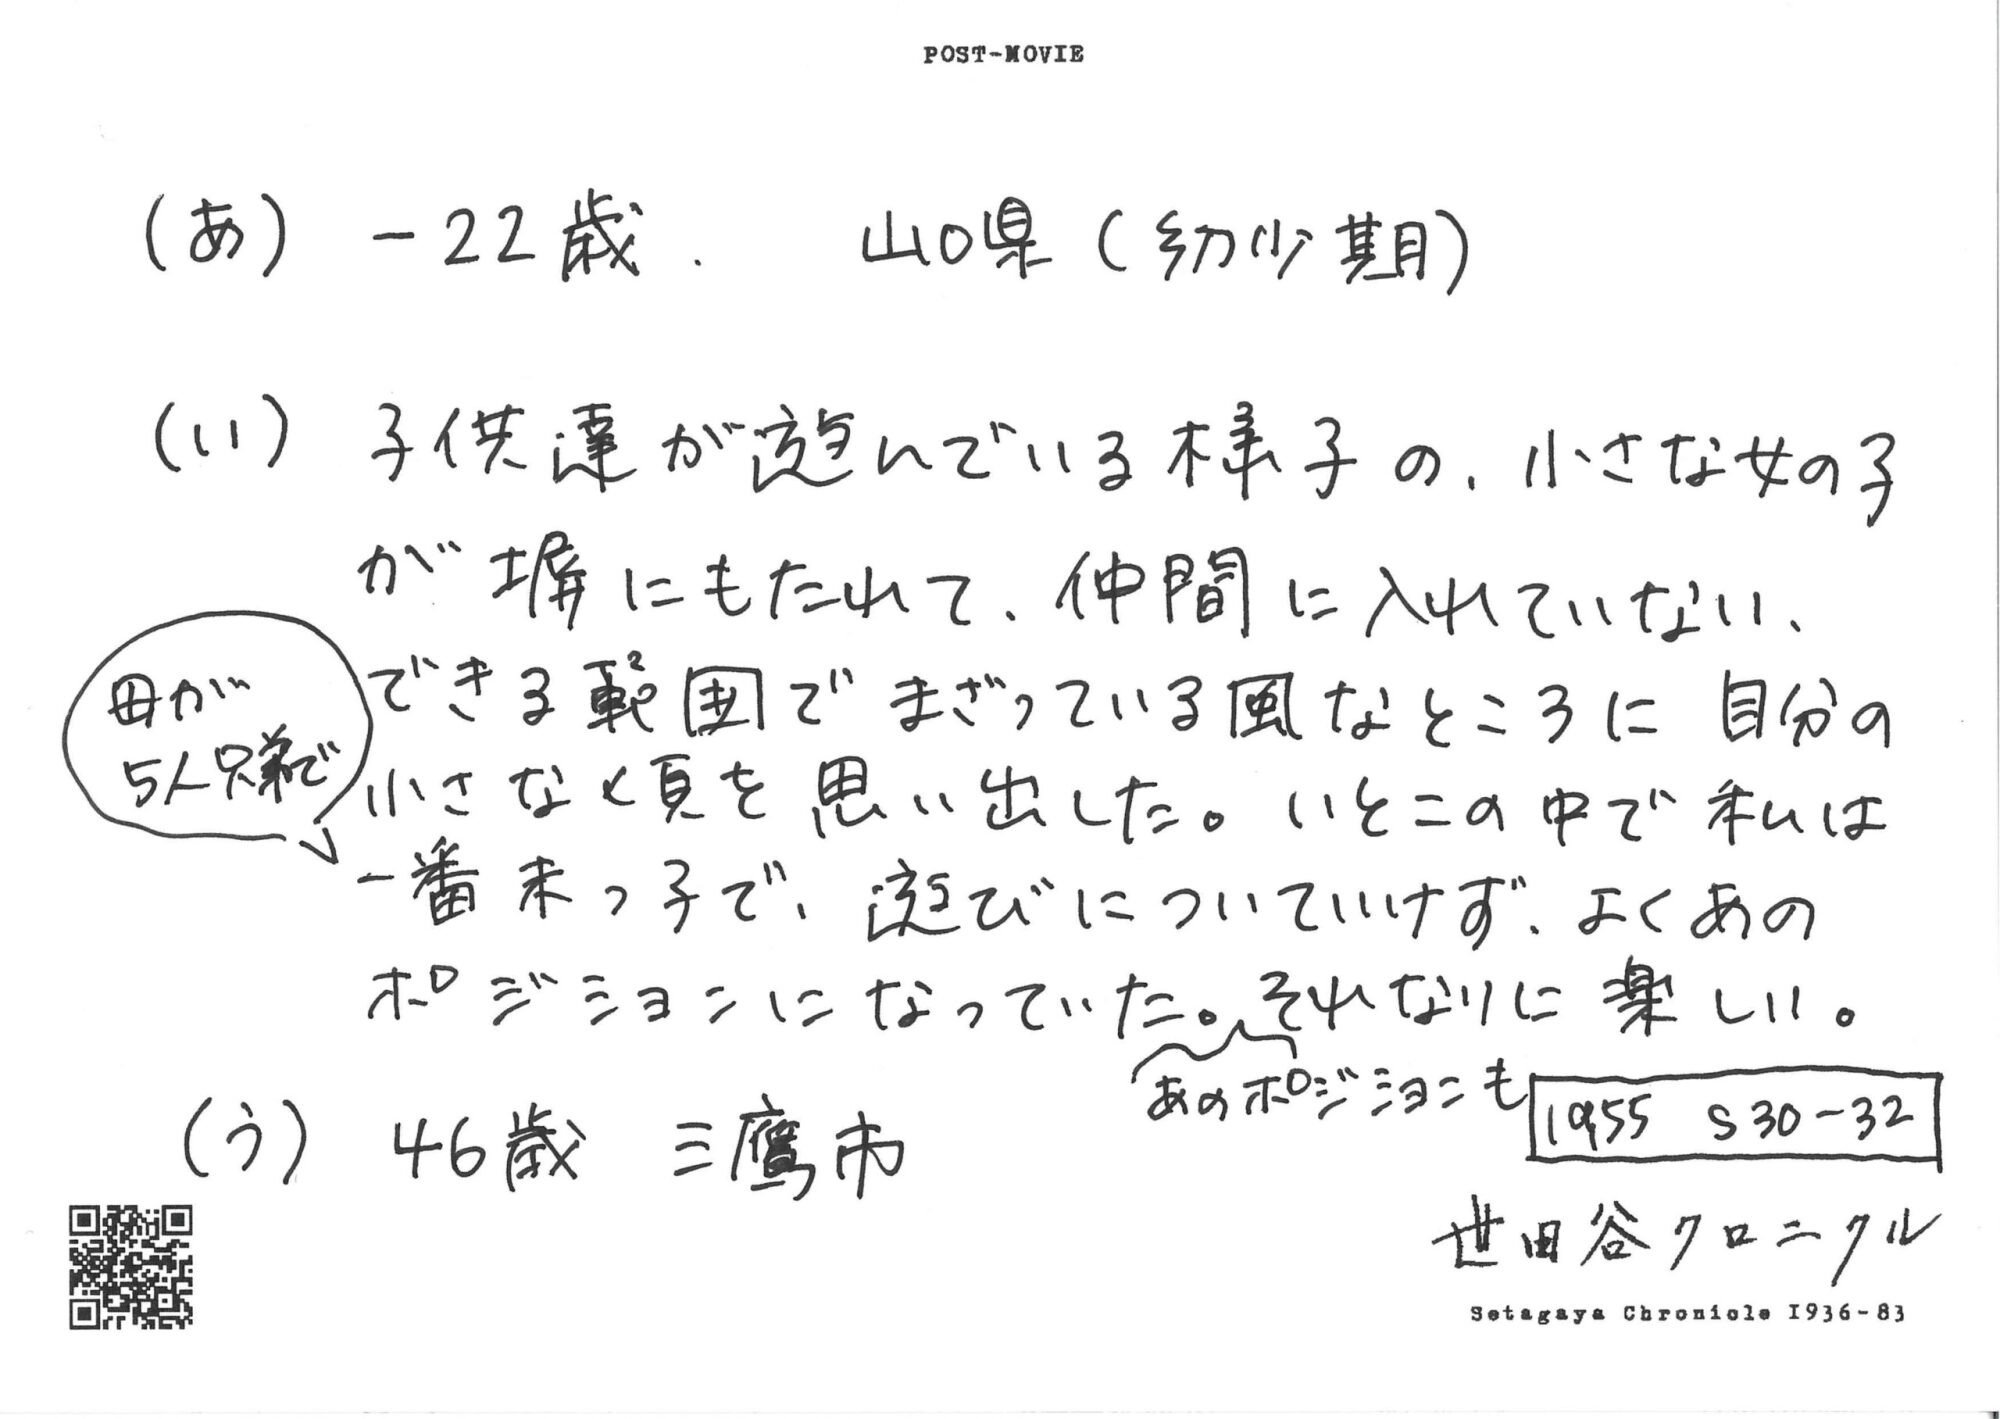 POST-MOVIE
(あ) -22歳. 山口県(幼少期)
(い) 子供達が遊んでいる様子の、小さな女の子
が塀にもたれて、仲間に入れていない、
できる範囲でまざっている風なところに自分の
小さなく頃を思い出した。いとこの中で私は
母が
5人兄弟で
一番末っ子で、遊びについていけず、よくあの
ポジションになっていた。それなりに楽しい。
あのポジションも
(う) 46歳 三鷹市
1955 S30-32
世田谷クロニクル
Setagaya Chronicle 1936-83